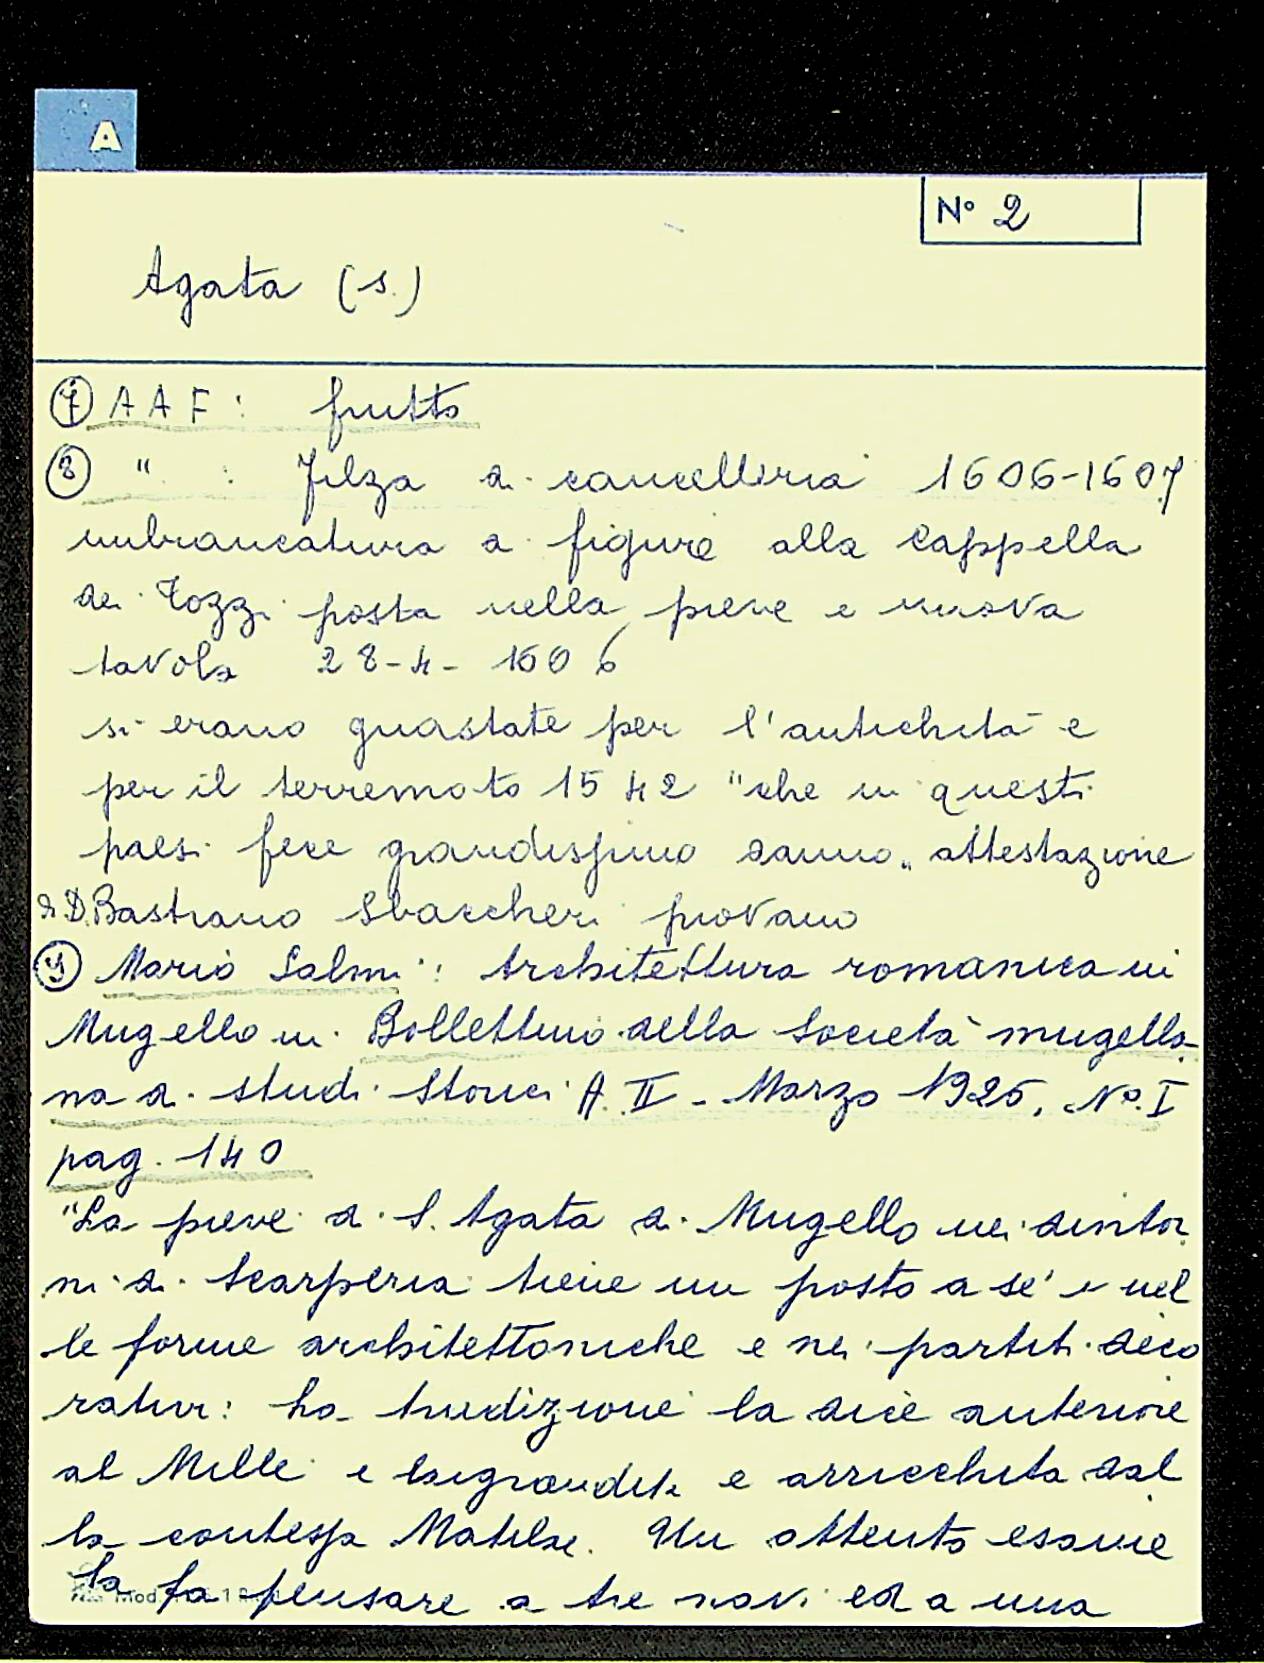 A
N° 2
Agata (s.)
⑦ A A F : frutto
⑧ " : Filza di cancelleria 1606-1607
imbiancatura a figure alla cappella
dei Tozzi posta nella pieve e nuova
tavola 28-4-1606
si erano guastate per l'antichità e
per il terremoto 1542 "che in questi
paesi fece grandissimo danno" attestazione
di D. Bastiano Sbaccheri piovano
⑨ Mario Salmi: Architettura romanica in
Mugello in Bollettino della Società mugella
na di studi Storici A. II - Marzo 1926, N°. I
pag. 140
"La pieve di S. Agata di Mugello nei dintor
ni di Scarperia tiene un posto a sé e nel
le forme architettoniche e nei partiti deco
rativi: ha tradizione la dice anteriore
al Mille e la ingrandita e arricchita dal
la contessa Matilde. Un attento esame
la fa pensare a tre navi ed a una